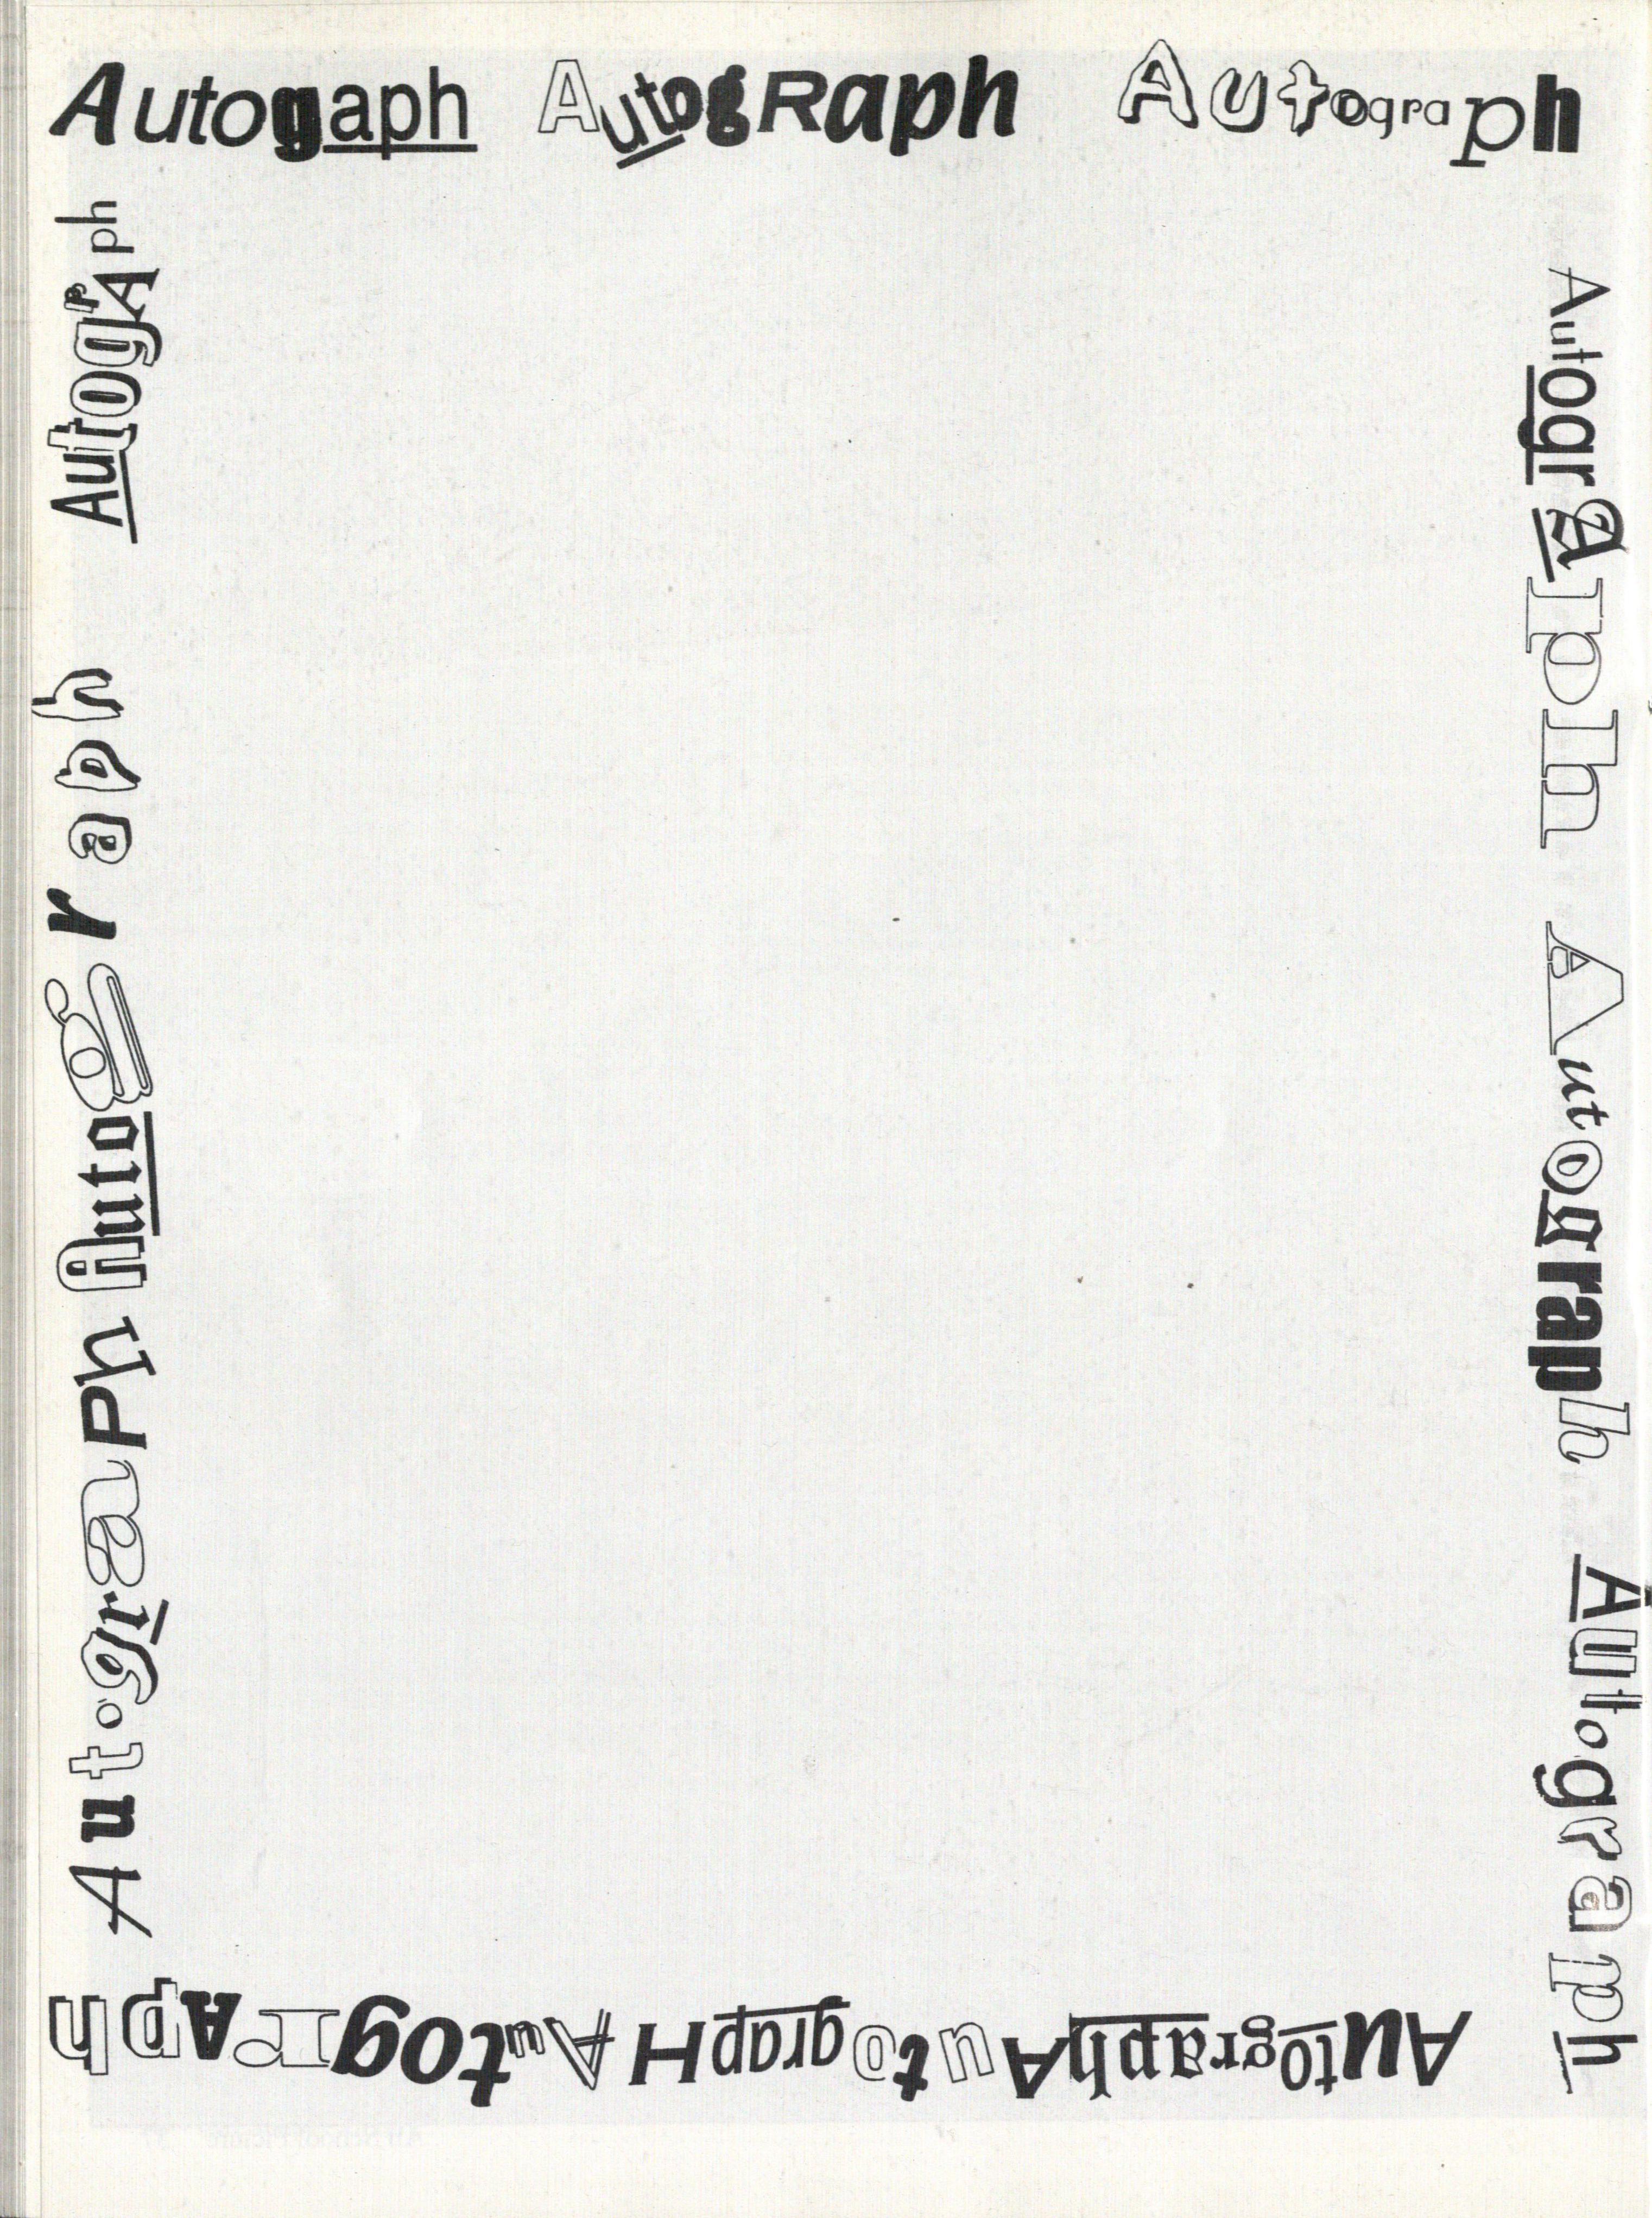 Autogaph AutogRaph AUtograph
AutogrAph Autograph Autograph
AutographAutograpH AutogrAph
AutograPh Autograph AutogrAph